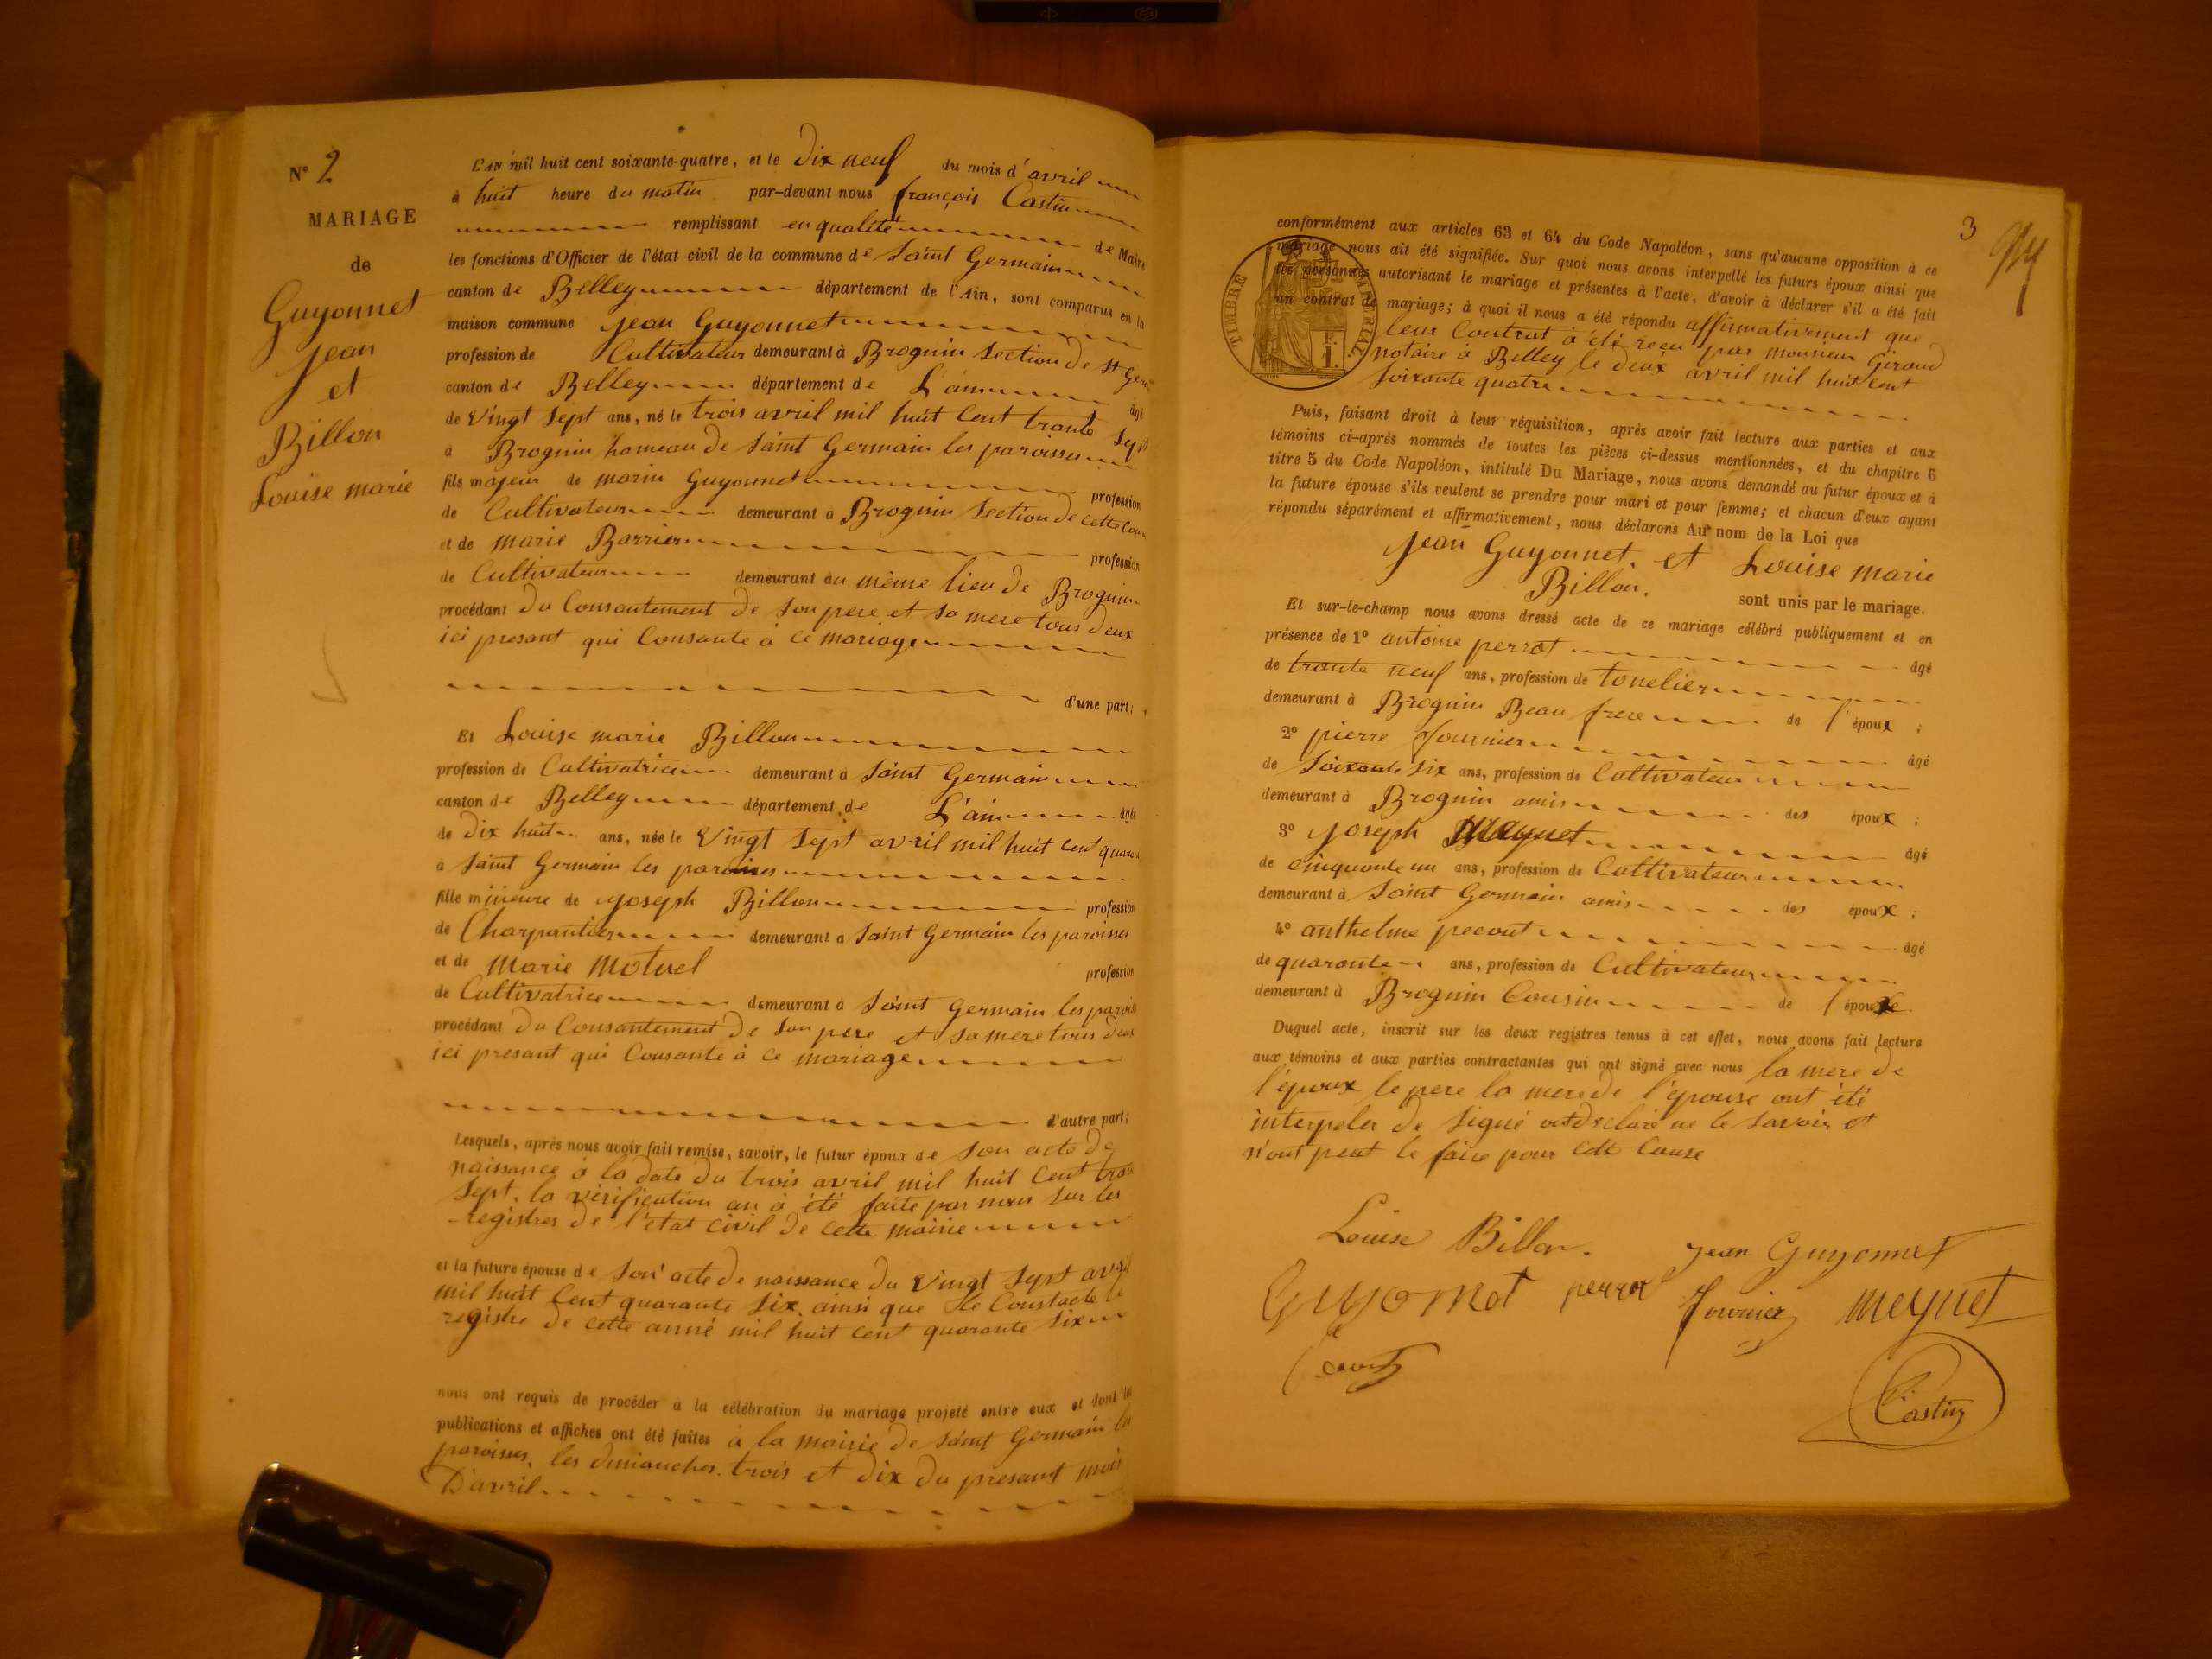 N° 2
MARIAGE
de
Guyonnet
Jean
et
Billon
Louise marie
L'AN mil huit cent soixante-quatre, et le dix neuf du mois d'avril
à huit heure du matin par-devant nous françois Castin
remplissant en qualité de Maire
les fonctions d'Officier de l'état civil de la commune de Saint Germain
canton de Belley département de l'Ain, sont comparus en la
maison commune Jean Guyonnet
profession de Cultivateur demeurant à Brognin Section de St Ger
canton de Belley département de L'ain âgé
de Vingt Sept ans, né le trois avril mil huit Cent trante Sept
à Brognin hameau de Saint Germain les paroisses
fils majeur de marin Guyonnet profession
de Cultivateur demeurant à Brognin Section de cette Com
et de marie Barrier profession
de Cultivateur demeurant au même lieu de Brognin
procédant du Consantement de Son pere et sa mere tous deux
ici presant qui Consante à ce mariage
d'une part;
Et Louise marie Billon
profession de Cultivatrice demeurant à Saint Germain
canton de Belley département de L'ain âgée
de dix huit ans, née le Vingt Sept avril mil huit cent quaran
à Saint Germain les paroisses
fille mineure de Joseph Billon profession
de Charpantier demeurant à Saint Germain les paroisses
et de Marie Motuel profession
de Cultivatrice demeurant à Saint Germain les parois
procédant du Consantement de Son pere et sa mere tous deux
ici presant qui Consante à ce mariage
d'autre part;
Lesquels, après nous avoir fait remise, savoir, le futur époux de son acte de
naissance à la date du trois avril mil huit Cent tran
Sept. la vérification an à été faite par nous sur les
registres de l'état civil de cette mairie
et la future épouse de Son acte de naissance du Vingt Sept avril
mil huit Cent quarante Six ainsi que le Constacte le
registre de cette anné mil huit cent quarante Six
nous ont requis de procéder à la célébration du mariage projeté entre eux et dont les
publications et affiches ont été faites à la mairie de Saint Germain les
paroisses, les dimanches trois et dix du presant mois
D'avril
3
TIMBRE IMPERIAL
conformément aux articles 63 et 64 du Code Napoléon, sans qu'aucune opposition à ce
mariage nous ait été signifiée. Sur quoi nous avons interpellé les futurs époux ainsi que
les personnes autorisant le mariage et présentes à l'acte, d'avoir à déclarer s'il a été fait
un contrat de mariage; à quoi il nous a été répondu affirmativement que
leur Contrat à été reçu par monsieur Giroud
notaire à Belley le deux avril mil huit cent
Soixante quatre
Puis, faisant droit à leur réquisition, après avoir fait lecture aux parties et aux
témoins ci-après nommés de toutes les pièces ci-dessus mentionnées, et du chapitre 6
titre 5 du Code Napoléon, intitulé Du Mariage, nous avons demandé au futur époux et à
la future épouse s'ils veulent se prendre pour mari et pour femme; et chacun d'eux ayant
répondu séparément et affirmativement, nous déclarons Au nom de la Loi que
Jean Guyonnet, et Louise marie
Billon. sont unis par le mariage.
Et sur-le-champ nous avons dressé acte de ce mariage célébré publiquement et en
présence de 1° antoine perrot âgé
de trante neuf ans, profession de tonelier
demeurant à Brognin Beau frere de l'époux ;
2° pierre fournier âgé
de Soixante Six ans, profession de Cultivateur
demeurant à Brognin amis des époux ;
3° Joseph Meynet âgé
de cinquante un ans, profession de Cultivateur
demeurant à Saint Germain amis des époux ;
4° anthelme pecout âgé
de quarante ans, profession de Cultivateur
demeurant à Brognin Cousin de l'épouse.
Duquel acte, inscrit sur les deux registres tenus à cet effet, nous avons fait lecture
aux témoins et aux parties contractantes qui ont signé avec nous la mere de
l'époux le pere la mere de l'épouse ont été
interpeler de signé ont declaré ne le savoir et
n'ont peut le faire pour cette Cause
Louise Billon. Jean Guyonnet
Guyonnet perrot fournier Meynet
Castin